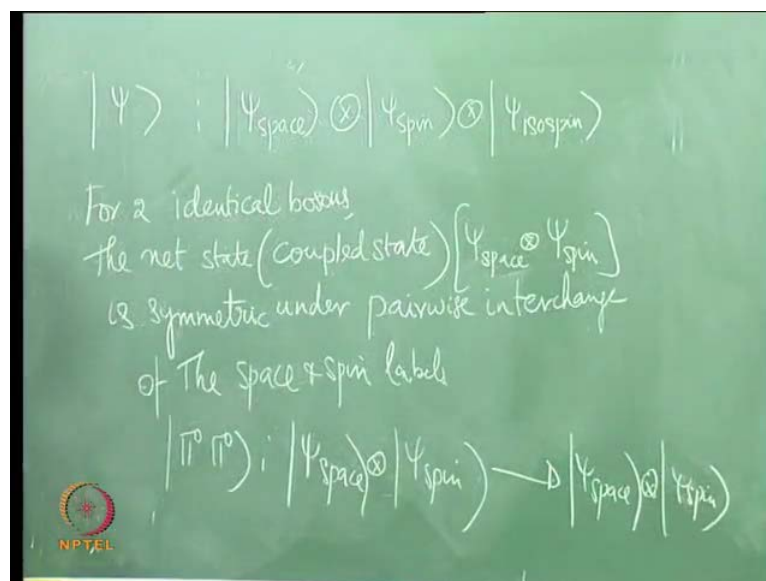 |Ψ⟩ : |Ψspace⟩ ⊗ |Ψspin⟩ ⊗ |Ψisospin⟩
For 2 identical bosons,
the net state (coupled state) [Ψspace ⊗ Ψspin]
is symmetric under pairwise interchange
of the space & spin labels
|π⁰ π⁰⟩ : |Ψspace⟩ ⊗ |Ψspin⟩ → |Ψspace⟩ ⊗ |Ψspin⟩
NPTEL